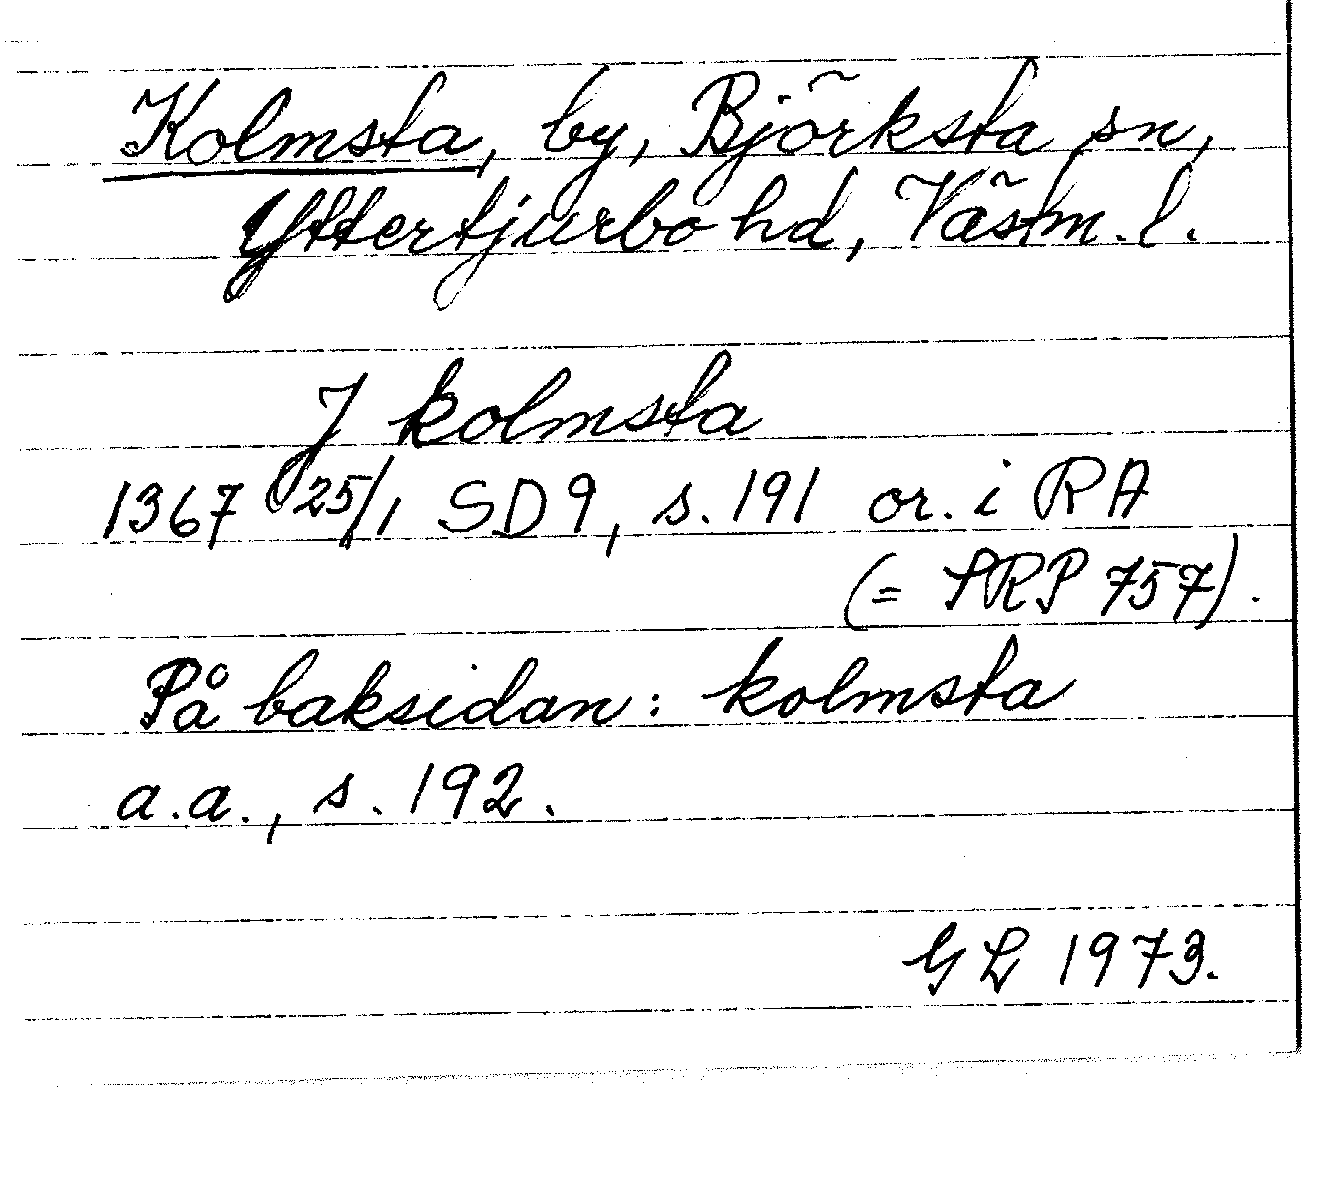 Kolmsta, by, Björksta sn,
Yttertjurbo hd, Västm. l.
J kolmsta
1367 25/1 SD 9, s. 191 or. i RA
(= SRP 757).
På baksidan: kolmsta
a.a., s. 192.
GL 1973.